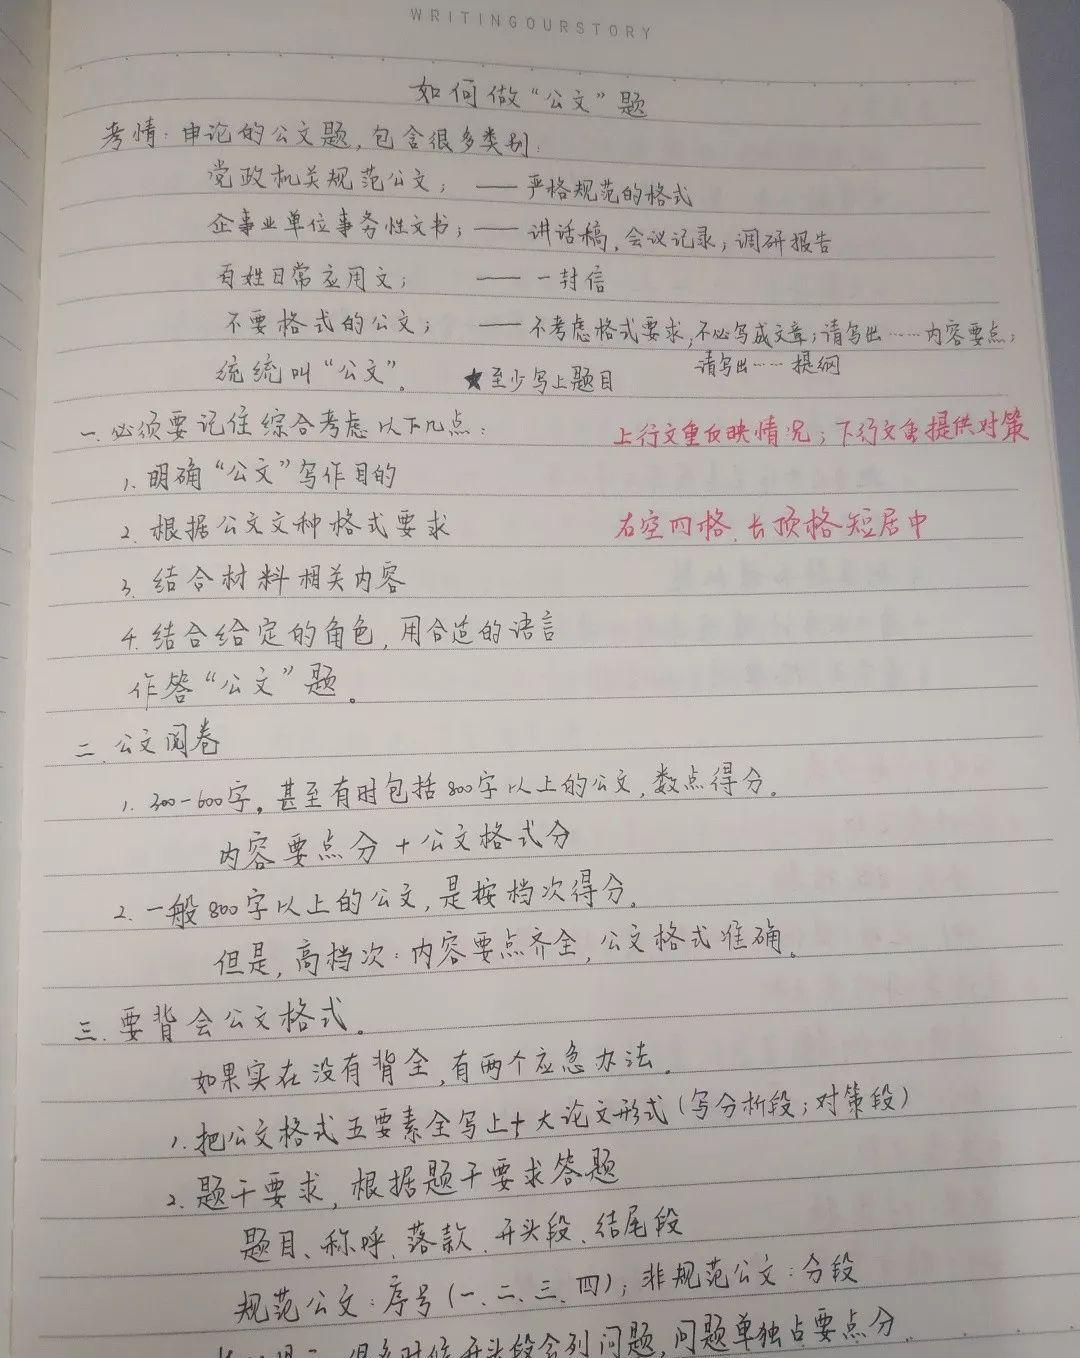 WRITINGOURSTORY
如何做“公文”题
考情：申论的公文题，包含很多类别：
党政机关规范公文； —— 严格规范的格式
企事业单位事务性文书；—— 讲话稿，会议记录；调研报告
百姓日常应用文； —— 一封信
不要格式的公文； —— 不考虑格式要求，不必写成文章；请写出……内容要点；
请写出……提纲
统统叫“公文”。 ★至少写上题目
一.必须要记住综合考虑以下几点： 上行文重反映情况；下行文重提供对策
1.明确“公文”写作目的
2.根据公文文种格式要求 右空四格、长顶格短居中
3.结合材料相关内容
4.结合给定的角色，用合适的语言
作答“公文”题。
二.公文阅卷
1.300-600字。甚至有时包括800字以上的公文，数点得分。
内容要点分+公文格式分
2.一般800字以上的公文，是按档次得分。
但是，高档次：内容要点齐全，公文格式准确。
三.要背会公文格式。
如果实在没有背全，有两个应急办法。
1.把公文格式五要素全写上+大论文形式（写分析段；对策段）
2.题干要求，根据题干要求答题
题目、称呼、落款、开头段、结尾段
规范公文：序号（一、二、三、四）；非规范公文：分段
很多时候开头段会列问题，问题单独占要点分。